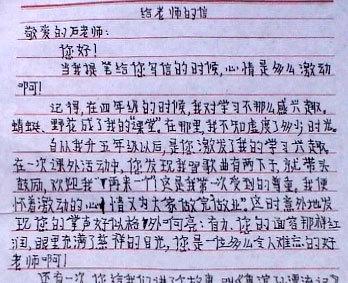 给老师的信
敬爱的石老师:
您好!
当我提笔给您写信的时候,心情是多么激动
啊!
记得,在四年级的时候,我对学习不那么感兴趣。
蜻蜓、野花成了我的"课堂"。在那里,我不知虚度了多少时光。
自从我升五年级以后,是您激发了我的学习兴趣。
在一次课外活动中,您发现我唱歌曲有两下子,就带头
鼓励,欢迎我"再来一个"这是我第一次受到的尊重,我便
怀着激动的心情又为大家做 这时意外地发
现您的掌声好似格外响亮:有力,您的面容那样红
润,眼里充满了慈祥的目光,您是一位多么令人难忘的好
老师啊!
还有一次,您给我们讲了故事